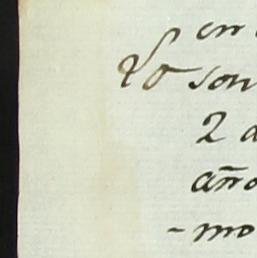 en
Lo son
2 d
año
-mo